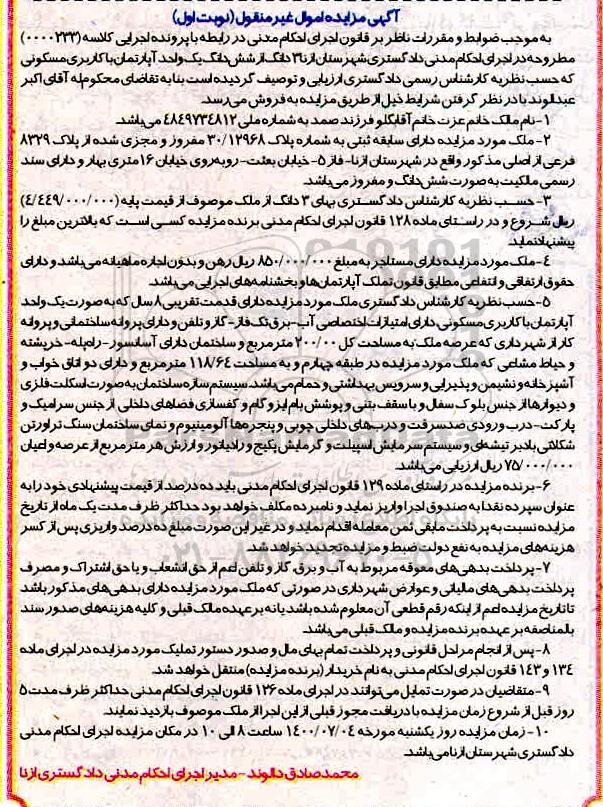 آگهی مزایده اموال غیر منقول (نوبت اول)
به موجب ضوابط و مقررات ناظر بر قانون اجرای احکام مدنی در رابطه با پرونده اجرایی کلاسه (۰۰۰۰۲۳۳)
مطروحه در اجرای احکام مدنی دادگستری شهرستان ازنا ۳ دانگ از شش دانگ یک واحد آپارتمان با کاربری مسکونی
که حسب نظریه کارشناس رسمی دادگستری ارزیابی و توصیف گردیده است بنا به تقاضای محکوم‌له آقای اکبر
عبدالوند با در نظر گرفتن شرایط ذیل از طریق مزایده به فروش می‌رسد.
۱- نام مالک خانم عزت خانم آقابگلو فرزند صمد به شماره ملی ۴۸۴۹۷۳۴۸۱۲ می‌باشد.
۲- ملک مورد مزایده دارای سابقه ثبتی به شماره پلاک ۳۰/۱۲۹۶۸ مفروز و مجزی شده از پلاک ۸۳۲۹
فرعی از اصلی مذکور واقع در شهرستان ازنا- فاز ۵- خیابان بعثت- روبه‌روی خیابان ۱۶ متری بهار و دارای سند
رسمی مالکیت به صورت شش دانگ و مفروز می‌باشد.
۳- حسب نظریه کارشناس دادگستری بهای ۳ دانگ از ملک موصوف از قیمت پایه (۴/۴۴۹/۰۰۰/۰۰۰)
ریال شروع و در راستای ماده ۱۲۸ قانون اجرای احکام مدنی برنده مزایده کسی است که بالاترین مبلغ را
پیشنهاد نماید.
۴- ملک مورد مزایده دارای مستاجر به مبلغ ۸۵۰/۰۰۰/۰۰۰ ریال رهن و بدون اجاره ماهیانه می‌باشد و دارای
حقوق ارتفاقی و انتفاعی مطابق قانون تملک آپارتمان‌ها و بخشنامه‌های اجرایی می‌باشد.
۵- حسب نظریه کارشناس دادگستری ملک مورد مزایده دارای قدمت تقریبی ۸ سال که به صورت یک واحد
آپارتمان با کاربری مسکونی، دارای امتیازات اختصاصی آب- برق تک فاز- گاز و تلفن و دارای پروانه ساختمانی و پروانه
کار از شهرداری که عرصه ملک به مساحت کل ۲۰۰/۰۰ مترمربع و ساختمان دارای آسانسور- راه‌پله- خرپشته
و حیاط مشاعی که ملک مورد مزایده در طبقه چهارم و به مساحت ۱۱۸/۶۴ مترمربع و دارای دو اتاق خواب و
آشپزخانه و نشیمن و پذیرایی و سرویس بهداشتی و حمام می‌باشد. سیستم سازه ساختمان به صورت اسکلت فلزی
و دیوارها از جنس بلوک سفال و با سقف بتنی و پوشش بام ایزوگام و کفسازی فضاهای داخلی از جنس سرامیک و
پارکت- درب ورودی ضدسرقت و درب‌های داخلی چوبی و پنجره‌ها آلومینیوم و نمای ساختمان سنگ تراورتن
شکلاتی بادبر تیشه‌ای و سیستم سرمایش اسپیلت و گرمایش پکیج و رادیاتور و ارزش هر مترمربع از عرصه و اعیان
۷۵/۰۰۰/۰۰۰ ریال ارزیابی می‌باشد.
۶- برنده مزایده در راستای ماده ۱۲۹ قانون اجرای احکام مدنی باید ده درصد از قیمت پیشنهادی خود را به
عنوان سپرده نقدا به صندوق اجرا واریز نماید و نامبرده مکلف خواهد بود حداکثر ظرف مدت یک ماه از تاریخ
مزایده نسبت به پرداخت مابقی ثمن معامله اقدام نماید و در غیر این صورت مبلغ ده درصد واریزی پس از کسر
هزینه‌های مزایده به نفع دولت ضبط و مزایده تجدید خواهد شد.
۷- پرداخت بدهی‌های معوقه مربوط به آب و برق، گاز و تلفن اعم از حق انشعاب و یا حق اشتراک و مصرف
پرداخت بدهی‌های مالیاتی و عوارض شهرداری در صورتی که ملک مورد مزایده دارای بدهی‌های مذکور باشد
تا تاریخ مزایده اعم از اینکه رقم قطعی آن معلوم شده باشد یا نه بر عهده مالک قبلی و کلیه هزینه‌های صدور سند
بالمناصفه بر عهده برنده مزایده و مالک قبلی می‌باشد.
۸- پس از انجام مراحل قانونی و پرداخت تمام بهای مال و صدور دستور تملیک مورد مزایده در اجرای ماده
۱۳۴ و ۱۴۳ قانون اجرای احکام مدنی به نام خریدار (برنده مزایده) منتقل خواهد شد.
۹- متقاضیان در صورت تمایل می‌توانند در اجرای ماده ۱۲۶ قانون اجرای احکام مدنی حداکثر ظرف مدت ۵
روز قبل از شروع زمان مزایده با دریافت مجوز قبلی از این اجرا از ملک موصوف بازدید نمایند.
۱۰- زمان مزایده روز یکشنبه مورخه ۱۴۰۰/۰۷/۰۴ ساعت ۸ الی ۱۰ در مکان مزایده اجرای احکام مدنی
دادگستری شهرستان ازنا می‌باشد.
محمدصادق دالوند - مدیر اجرای احکام مدنی دادگستری ازنا